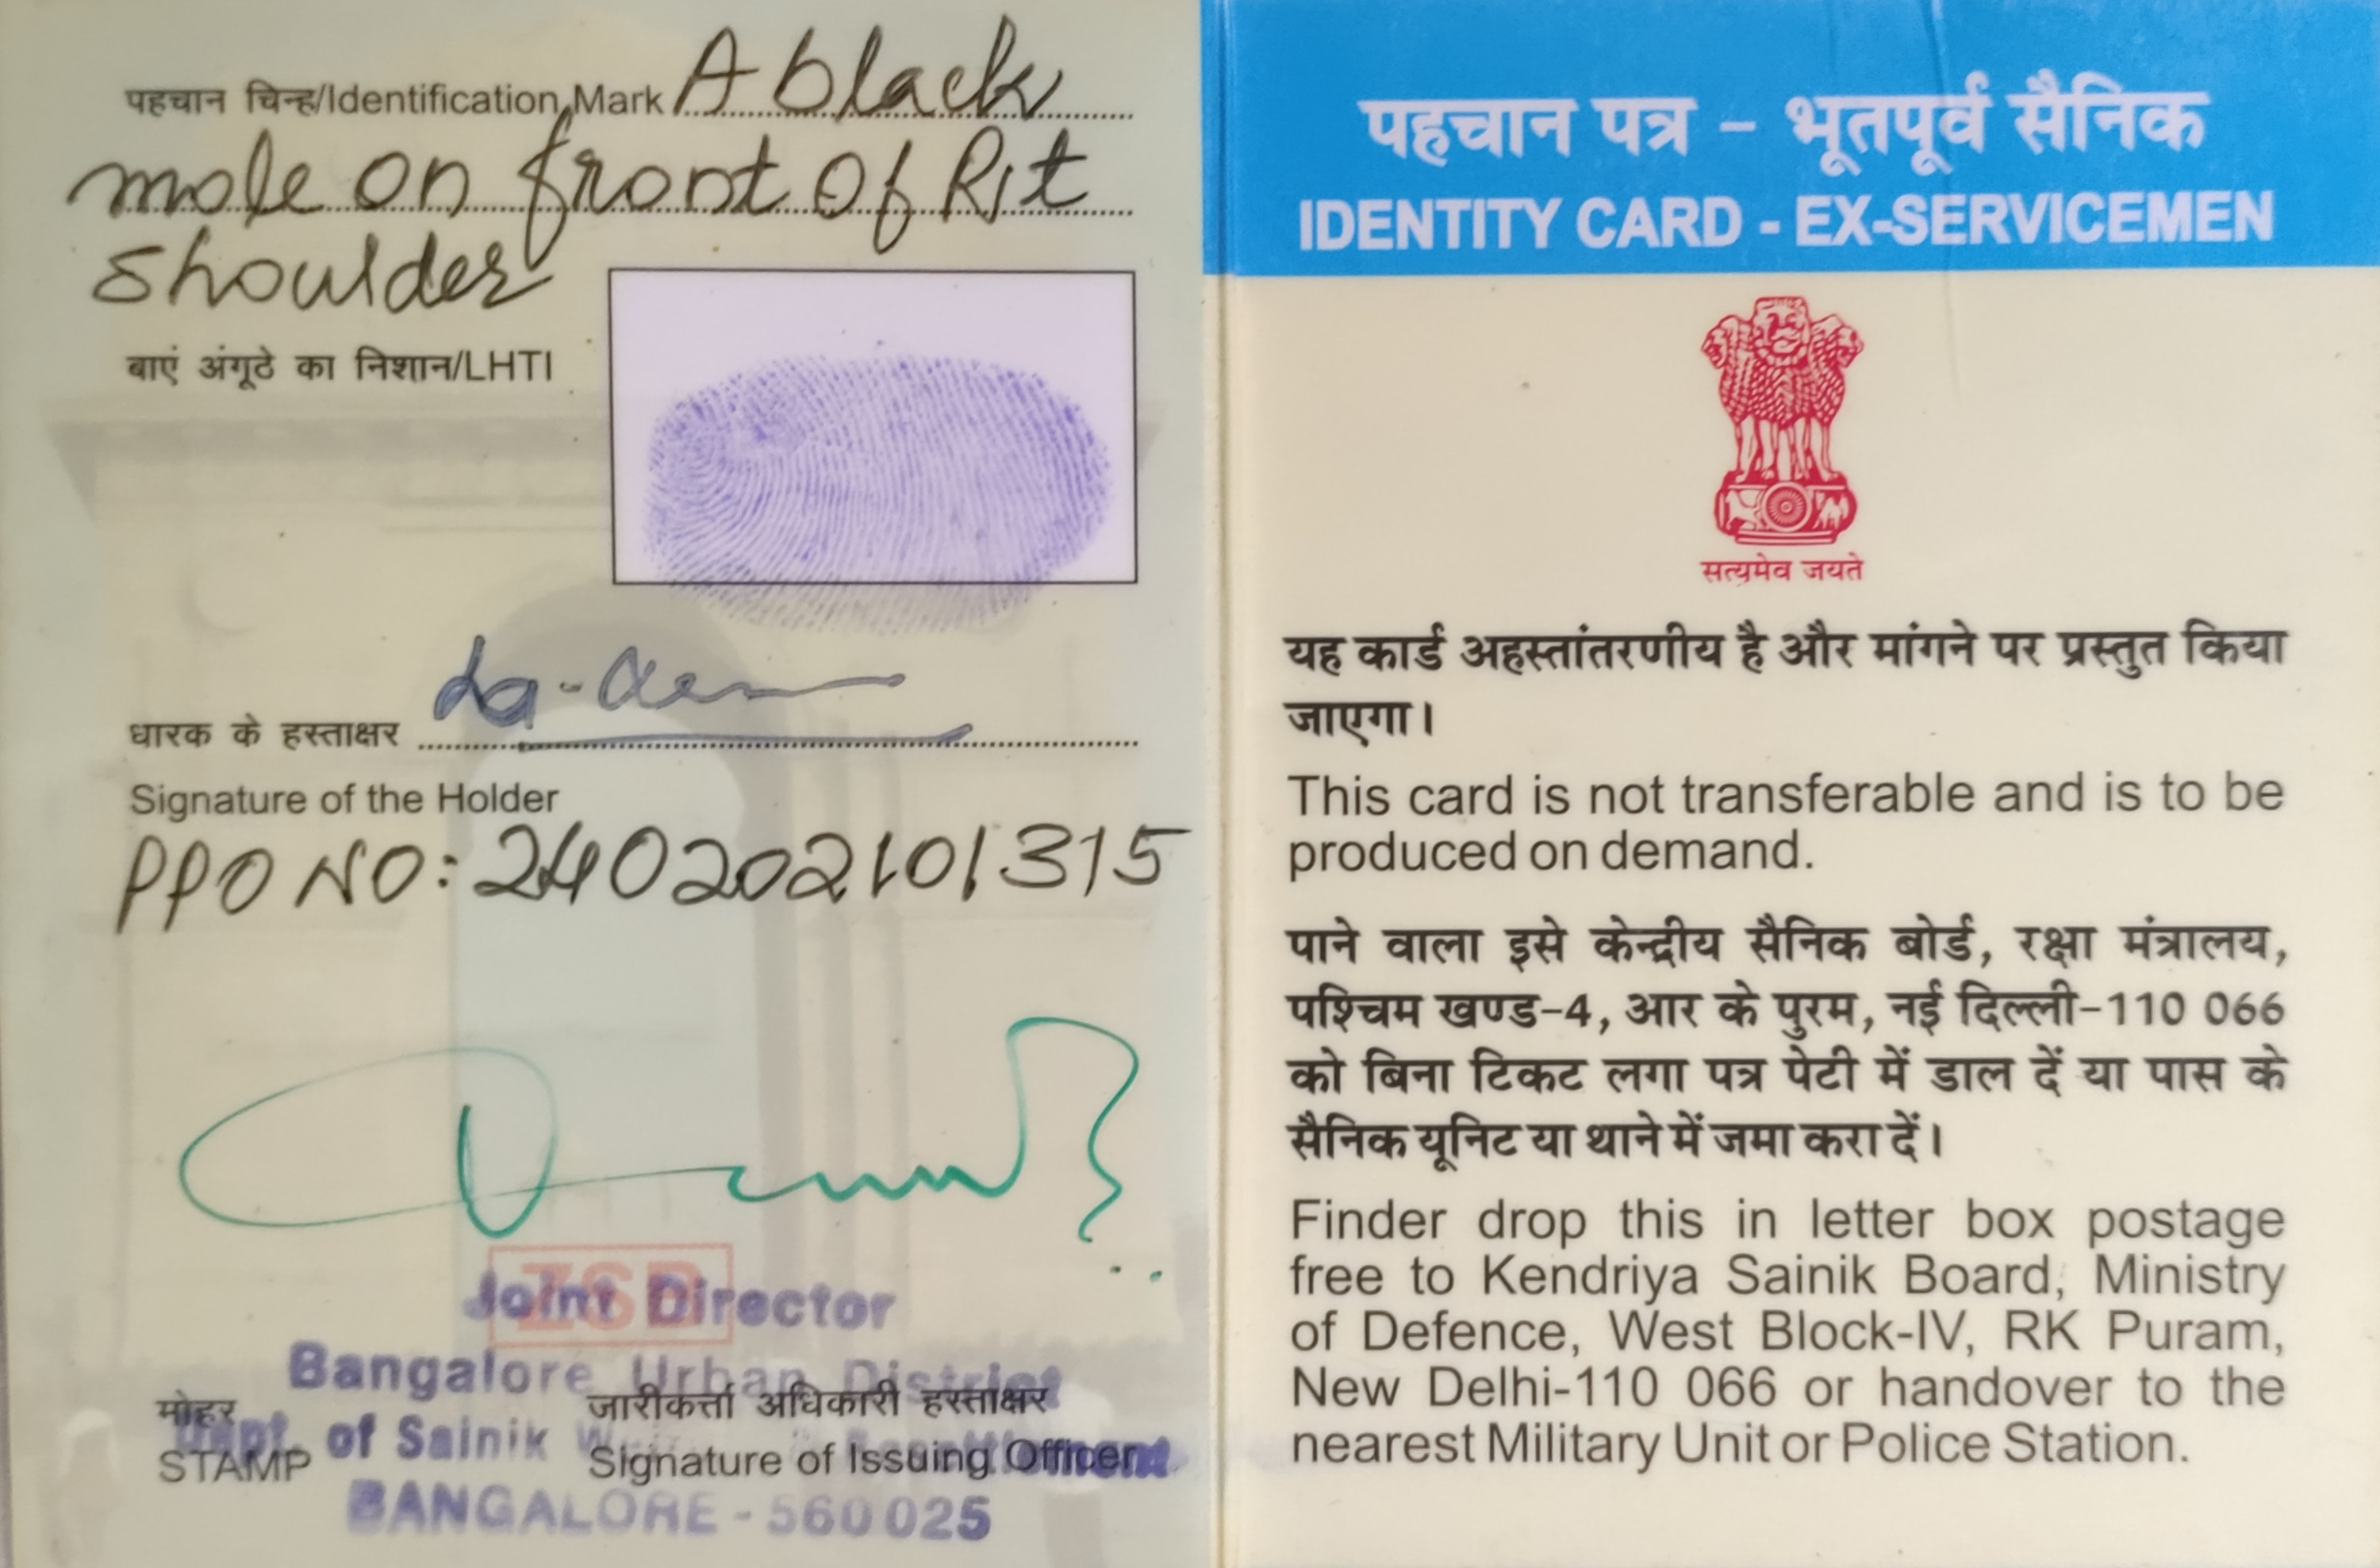 पहचान चिन्ह/Identification Mark A black
mole on front of Rit
shoulder
बाएं अंगूठे का निशान/LHTI
धारक के हस्ताक्षर
Signature of the Holder
PPO NO: 240202101315
ZSB
Joint Director
Bangalore Urban District
Dept. of Sainik
BANGALORE - 560025
मोहर
STAMP
जारीकर्त्ता अधिकारी हस्ताक्षर
Signature of Issuing Officer
पहचान पत्र – भूतपूर्व सैनिक
IDENTITY CARD - EX-SERVICEMEN
सत्यमेव जयते
यह कार्ड अहस्तांतरणीय है और मांगने पर प्रस्तुत किया
जाएगा।
This card is not transferable and is to be
produced on demand.
पाने वाला इसे केन्द्रीय सैनिक बोर्ड, रक्षा मंत्रालय,
पश्चिम खण्ड-4, आर के पुरम, नई दिल्ली-110 066
को बिना टिकट लगा पत्र पेटी में डाल दें या पास के
सैनिक यूनिट या थाने में जमा करा दें।
Finder drop this in letter box postage
free to Kendriya Sainik Board, Ministry
of Defence, West Block-IV, RK Puram,
New Delhi-110 066 or handover to the
nearest Military Unit or Police Station.